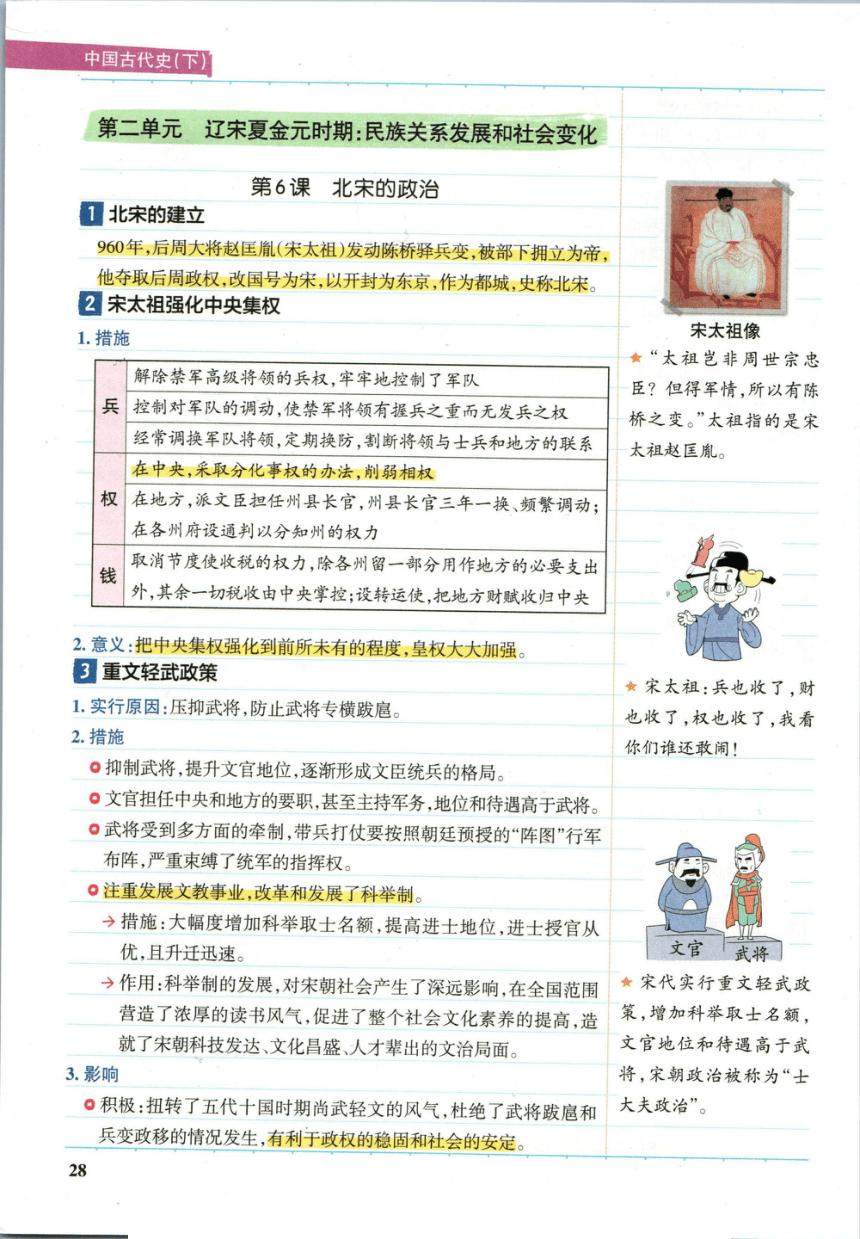 中国古代史(下)
第二单元 辽宋夏金元时期:民族关系发展和社会变化
第6课 北宋的政治
1 北宋的建立
960年,后周大将赵匡胤(宋太祖)发动陈桥驿兵变,被部下拥立为帝,
他夺取后周政权,改国号为宋,以开封为东京,作为都城,史称北宋。
2 宋太祖强化中央集权
1.措施
兵
解除禁军高级将领的兵权,牢牢地控制了军队
控制对军队的调动,使禁军将领有握兵之重而无发兵之权
经常调换军队将领,定期换防,割断将领与士兵和地方的联系
权
在中央,采取分化事权的办法,削弱相权
在地方,派文臣担任州县长官,州县长官三年一换、频繁调动;
在各州府设通判以分知州的权力
钱
取消节度使收税的权力,除各州留一部分用作地方的必要支出
外,其余一切税收由中央掌控;设转运使,把地方财赋收归中央
2.意义:把中央集权强化到前所未有的程度,皇权大大加强。
3 重文轻武政策
1.实行原因:压抑武将,防止武将专横跋扈。
2.措施
抑制武将,提升文官地位,逐渐形成文臣统兵的格局。
文官担任中央和地方的要职,甚至主持军务,地位和待遇高于武将。
武将受到多方面的牵制,带兵打仗要按照朝廷预授的“阵图”行军
布阵,严重束缚了统军的指挥权。
注重发展文教事业,改革和发展了科举制。
→措施:大幅度增加科举取士名额,提高进士地位,进士授官从
优,且升迁迅速。
→作用:科举制的发展,对宋朝社会产生了深远影响,在全国范围
营造了浓厚的读书风气,促进了整个社会文化素养的提高,造
就了宋朝科技发达、文化昌盛、人才辈出的文治局面。
3.影响
积极:扭转了五代十国时期尚武轻文的风气,杜绝了武将跋扈和
兵变政移的情况发生,有利于政权的稳固和社会的安定。
28
宋太祖像
★“太祖岂非周世宗忠
臣?但得军情,所以有陈
桥之变。”太祖指的是宋
太祖赵匡胤。
★宋太祖:兵也收了,财
也收了,权也收了,我看
你们谁还敢闹!
文官
武将
★宋代实行重文轻武政
策,增加科举取士名额,
文官地位和待遇高于武
将,宋朝政治被称为“士
大夫政治”。